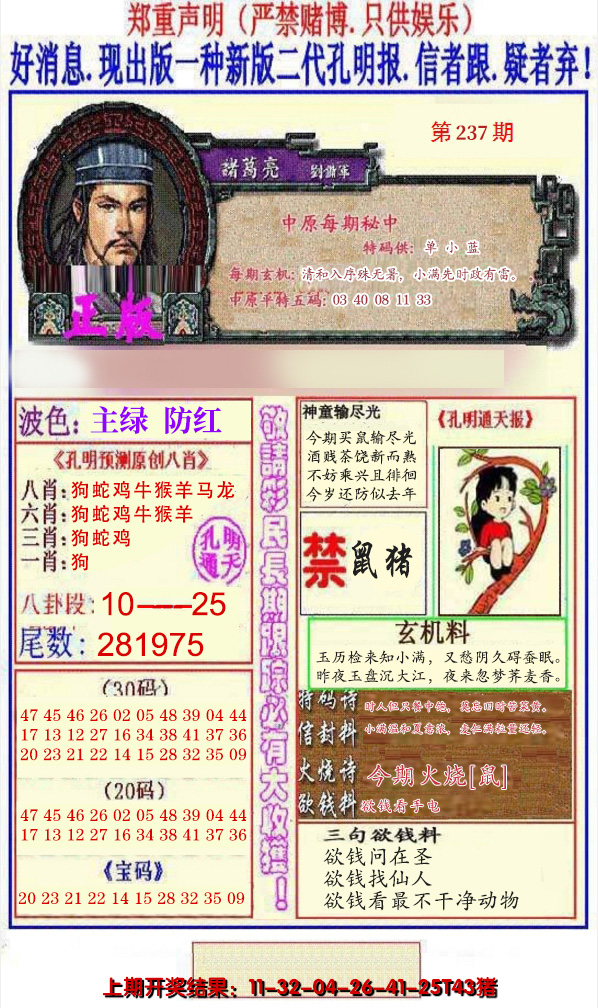 郑重声明（严禁赌博.只供娱乐）
好消息.现出版一种新版二代孔明报.信者跟.疑者弃！
第237期
諸葛亮 劉備軍
中原每期秘中
特码供：单小蓝
每期玄机：清和入序殊无暑，小满先时政有雷。
中原平特五码：03 40 08 11 33
正版
波色：主绿 防红
《孔明预测原创八肖》
八肖：狗蛇鸡牛猴羊马龙
六肖：狗蛇鸡牛猴羊
三肖：狗蛇鸡
一肖：狗
孔明
通天
八卦段：10——25
尾数：281975
（30码）
47 45 46 26 02 05 48 39 04 44
17 13 12 27 16 34 38 41 37 36
20 23 21 22 14 15 28 32 35 09
（20码）
47 45 46 26 02 05 48 39 04 44
17 13 12 27 16 34 38 41 37 36
《宝码》
20 23 21 22 14 15 28 32 35 09
敬請彩民長期跟踪必有大收獲！
神童输尽光
今期买鼠输尽光
酒贱茶饶新而熟
不妨乘兴且徘徊
今岁还防似去年
《孔明通天报》
禁鼠猪
玄机料
玉历检来知小满，又愁阴久碍蚕眠。
昨夜玉盘沉大江，夜来忽梦荞麦香。
特码诗 时人但只餐中饱，莫忘旧时苦菜黄。
信封料 小满温和夏意浓，麦仁满粒量还轻。
火烧诗 今期火烧[鼠]
欲钱料 欲钱看手电
三句欲钱料
欲钱问在圣
欲钱找仙人
欲钱看最不干净动物
上期开奖结果：11-32-04-26-41-25T43猪